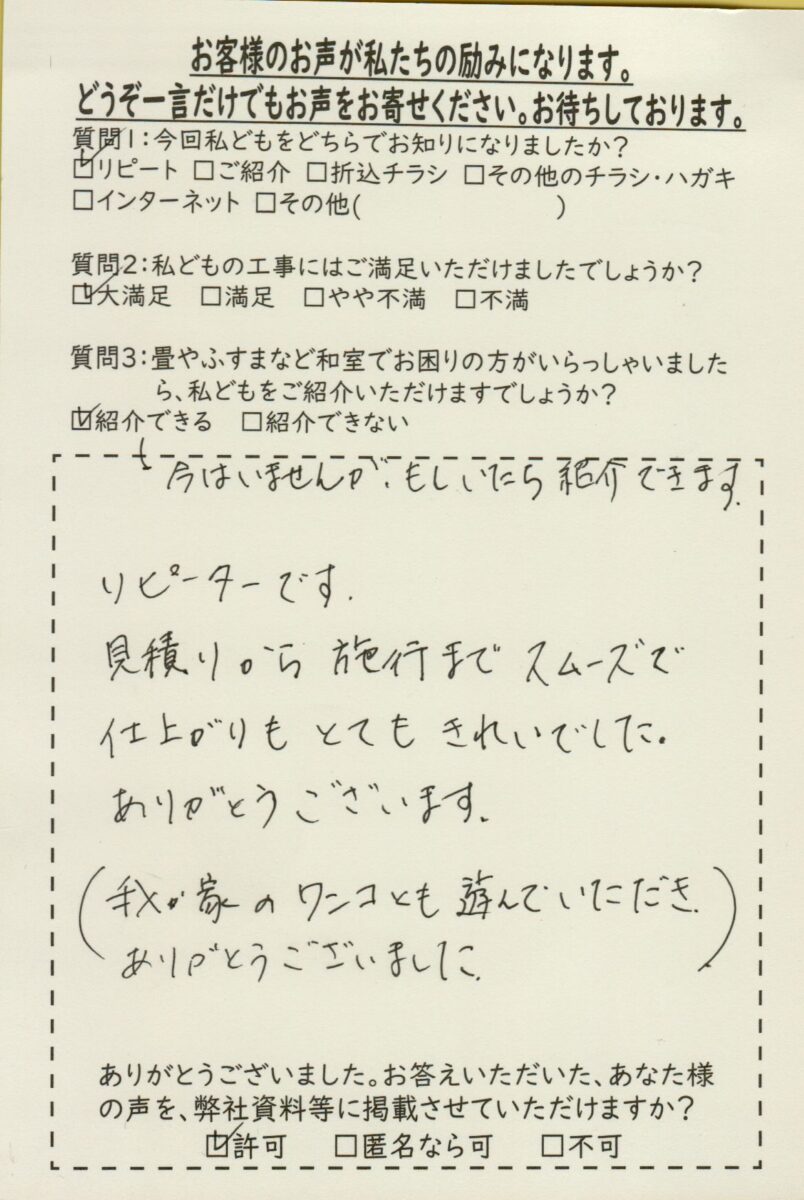 お客様のお声が私たちの励みになります。
どうぞ一言だけでもお声をお寄せください。お待ちしております。
質問1:今回私どもをどちらでお知りになりましたか?
☑リピート □ご紹介 □折込チラシ □その他のチラシ・ハガキ
□インターネット □その他( )
質問2:私どもの工事にはご満足いただけましたでしょうか?
☑大満足 □満足 □やや不満 □不満
質問3:畳やふすまなど和室でお困りの方がいらっしゃいました
ら、私どもをご紹介いただけますでしょうか?
☑紹介できる □紹介できない
今はいませんが、もしいたら紹介できます。
リピーターです.
見積りから施行までスムーズで
仕上がりもとてもきれいでした。
ありがとうございます。
(我が家のワンコとも遊んでいただき、
ありがとうございました。)
ありがとうございました。お答えいただいた、あなた様
の声を、弊社資料等に掲載させていただけますか?
☑許可 □匿名なら可 □不可